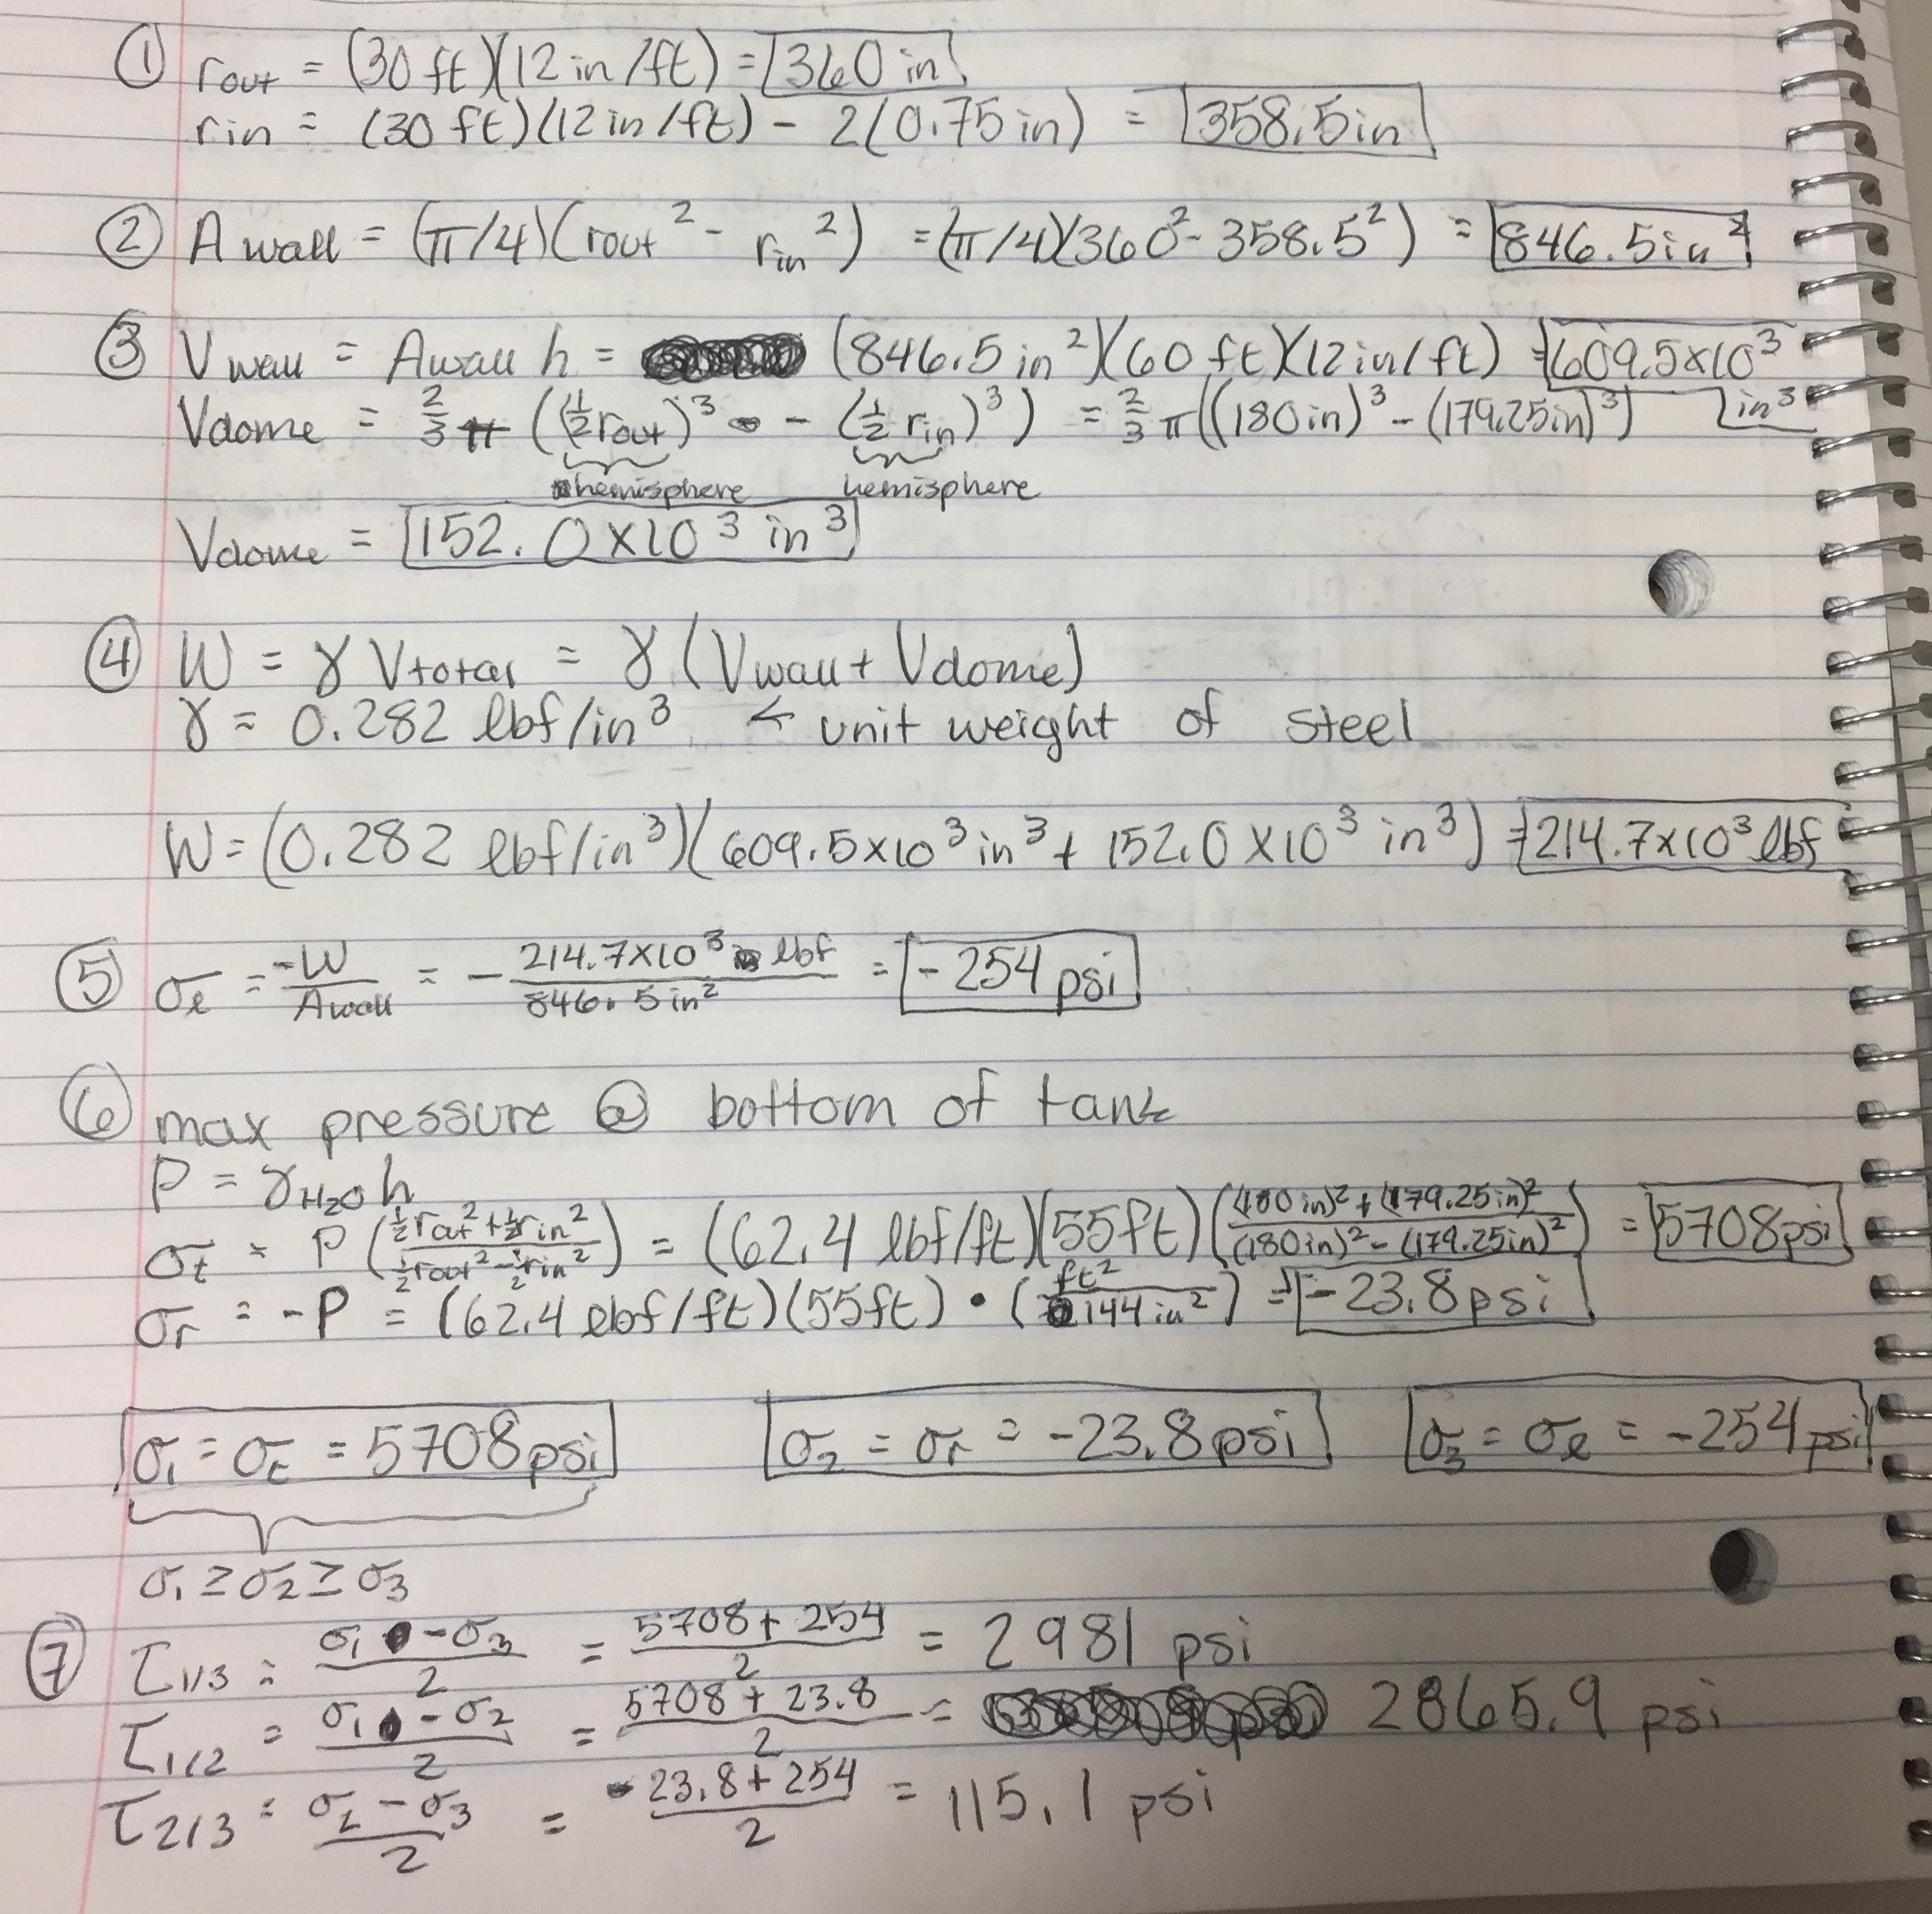 ① rout = (30 ft)(12 in/ft) = 360 in
rin = (30 ft)(12 in/ft) - 2(0.75 in) = 358.5 in
② A wall = (π/4)(rout² - rin²) = (π/4)(360² - 358.5²) = 846.5 in²
③ V wall = A wall h = (846.5 in²)(60 ft)(12 in/ft) = 609.5x10³ in³
Vdome = 2/3 π ((1/2 rout)³ - (1/2 rin)³) = 2/3 π((180in)³ - (179.25in)³)
hemisphere hemisphere
Vdome = 152.0 x10³ in³
④ W = γ Vtotal = γ (Vwall + Vdome)
γ = 0.282 lbf/in³ ← unit weight of steel
W = (0.282 lbf/in³)(609.5x10³ in³ + 152.0 x10³ in³) = 214.7x10³ lbf
⑤ σℓ = -W/Awall = - 214.7x10³ lbf/846.5 in² = -254 psi
⑥ max pressure @ bottom of tank
P = γH₂O h
σt = P (1/2 rout² + 1/2 rin² / 1/2 rout² - 1/2 rin²) = (62.4 lbf/ft)(55ft)((180in)² + (179.25in)² / (180in)² - (179.25in)²) = 5708psi
σr = -P = (62.4 lbf/ft)(55ft) • (ft²/144 in²) = -23.8psi
σ₁ = σt = 5708psi σ₂ = σr = -23.8psi σ₃ = σℓ = -254 psi
σ₁ ≥ σ₂ ≥ σ₃
⑦ τ1/3 = σ₁ - σ₃/2 = 5708 + 254/2 = 2981 psi
τ1/2 = σ₁ - σ₂/2 = 5708 + 23.8/2 = 2865.9 psi
τ2/3 = σ₂ - σ₃/2 = -23.8 + 254/2 = 115.1 psi